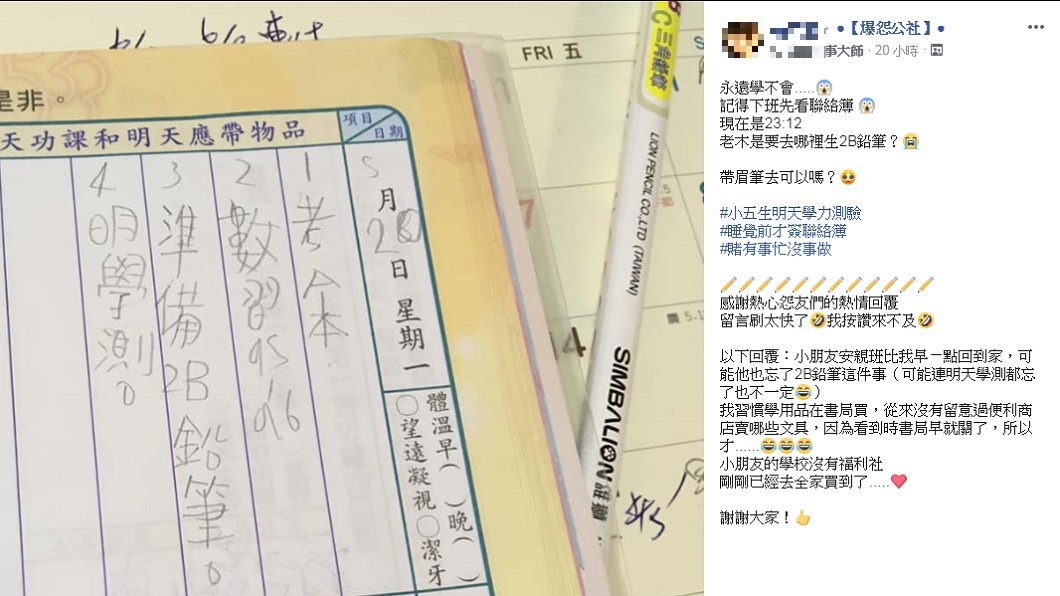 FRI 五
是非。
天功課和明天應帶物品
項目
日期
5
月
28
日
星期一
1考今本
2數習95
96
3準備2B鉛筆。
4明學測。
體溫早( )晚( )
○望遠凝視○潔牙
LION PENCIL CO.,LTD (TAIWAN)
SIMBALION 雄獅
•【爆怨公社】•
事大師 · 20 小時 ·
永遠學不會.....😱
記得下班先看聯絡簿 😱
現在是23:12
老木是要去哪裡生2B鉛筆？😭
帶眉筆去可以嗎？🥺
#小五生明天學力測驗
#睡覺前才簽聯絡簿
#賭有事忙沒事做
✏️✏️✏️✏️✏️✏️✏️✏️✏️✏️✏️✏️
感謝熱心怨友們的熱情回覆
留言刷太快了🤣我按讚來不及🤣
以下回覆：小朋友安親班比我早一點回到家，可
能他也忘了2B鉛筆這件事（可能連明天學測都忘
了也不一定😂）
我習慣學用品在書局買，從來沒有留意過便利商
店賣哪些文具，因為看到時書局早就關了，所以
才......😂😂😂
小朋友的學校沒有福利社
剛剛已經去全家買到了.....❤️
謝謝大家！👍